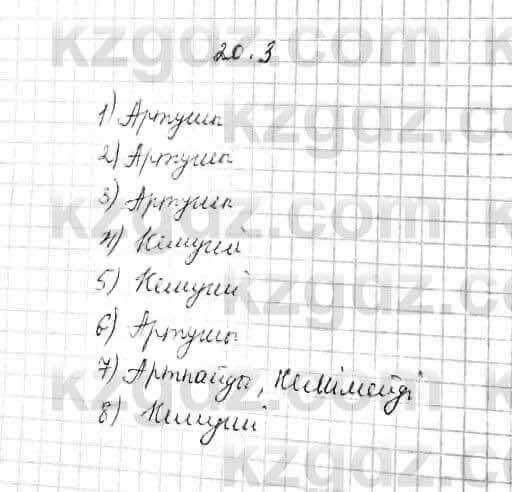 20.3
1) Артушы
2) Артушы
3) Артушы
4) Кемуші
5) Кемуші
6) Артушы
7) Артпайды, Кемімейді
8) Кемуші
kzgdz.com